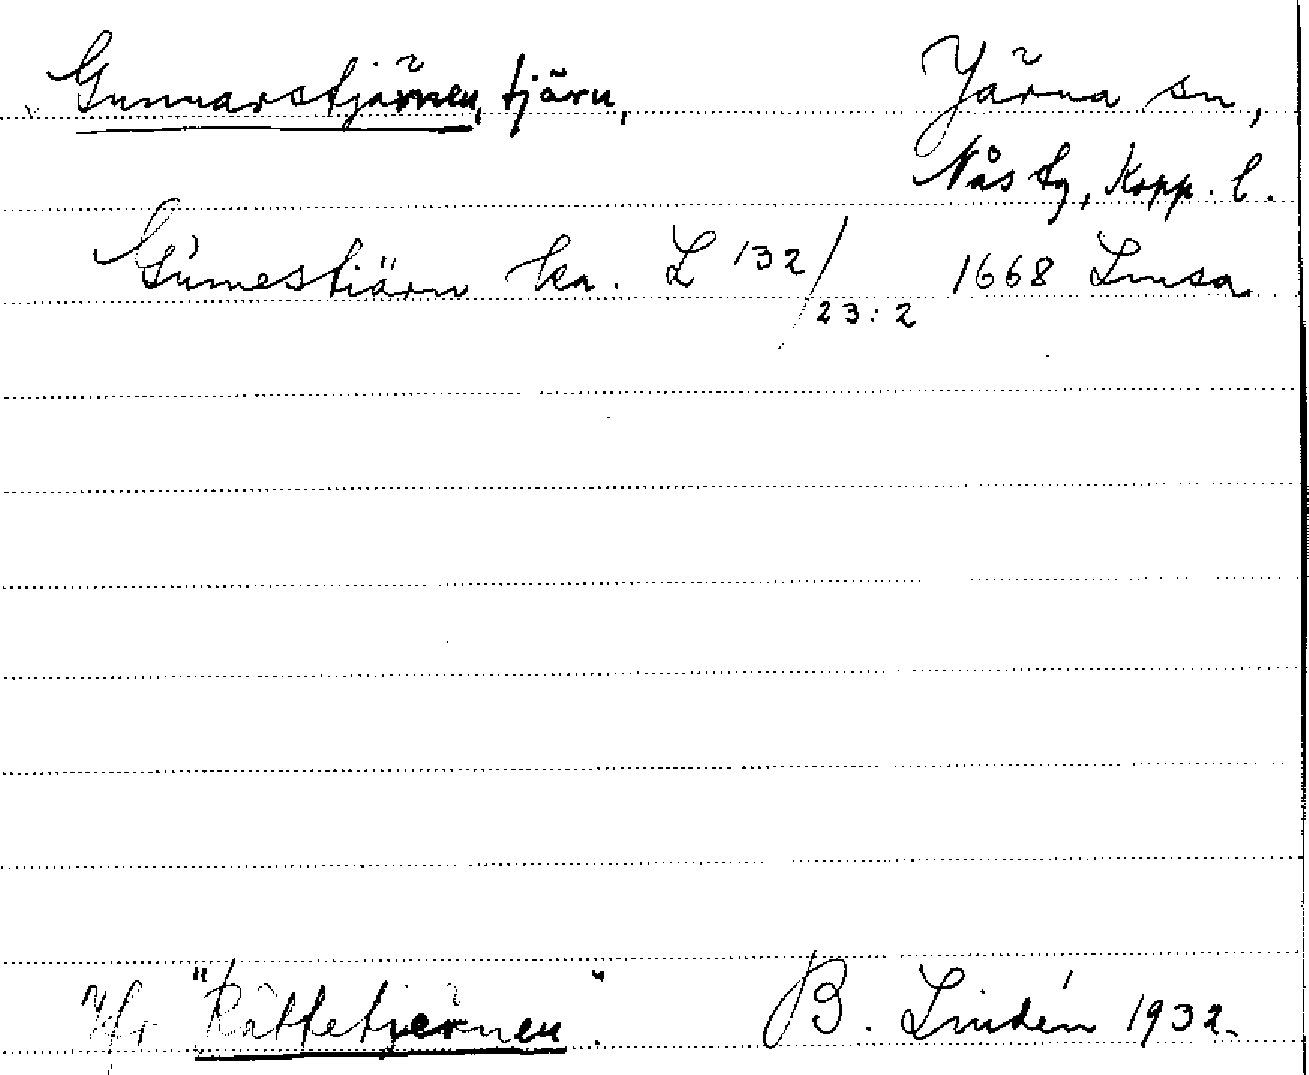 Gunnarstjärnen, tjärn, Järna sn,
Nås tg, Kopp. l.
Gùnnestiärn ka. L 132/23:2 1668 Limsa
Jfr "Rattetjernen". B. Lindén 1932.